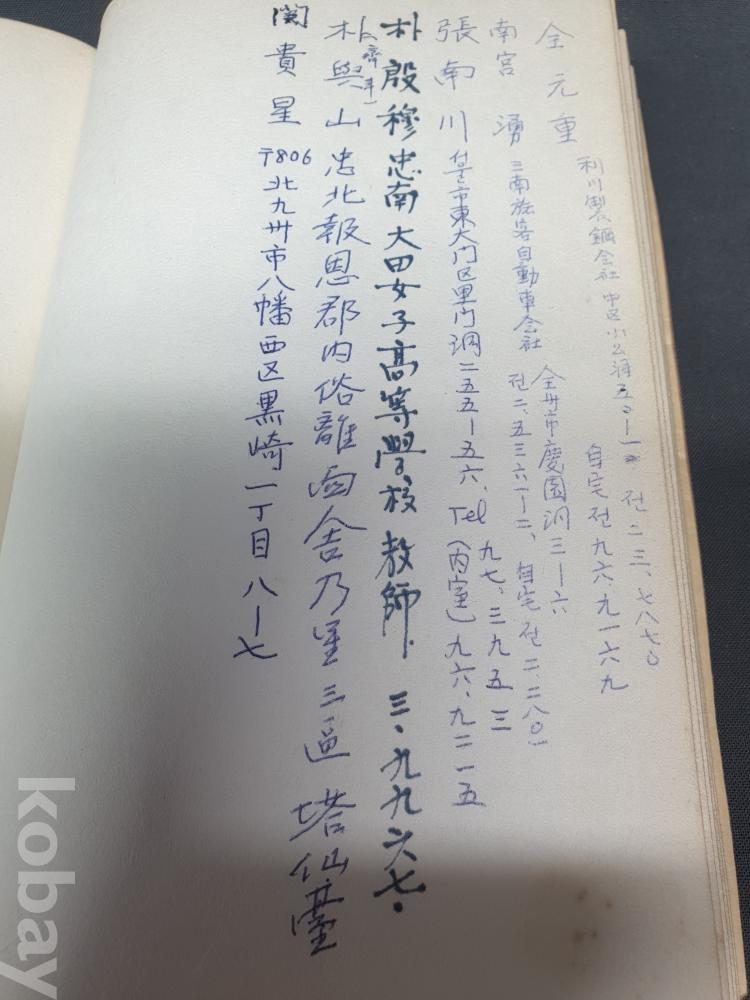 全元重
利川製鋼会社 中区小公洞五〇－一 전二三、七八七〇
自宅 전九六、九一六九
南宮湧 三南旅客自動車会社 전二、五三六一－二、自宅 전二、二八〇一
全州市慶園洞三－六
張南川 서울市東大门区里门洞二五五－五六、Tel 九七、三九五三
(內室) 九六、九二一五
朴殷穆 忠南大田女子高等學校 教師. 三、九九六七.
朴與山 忠北報恩郡內俗離面舍乃里三區 塔仙臺
閔貴星 〒806 北九州市八幡西区黒崎一丁目八－七
kobay